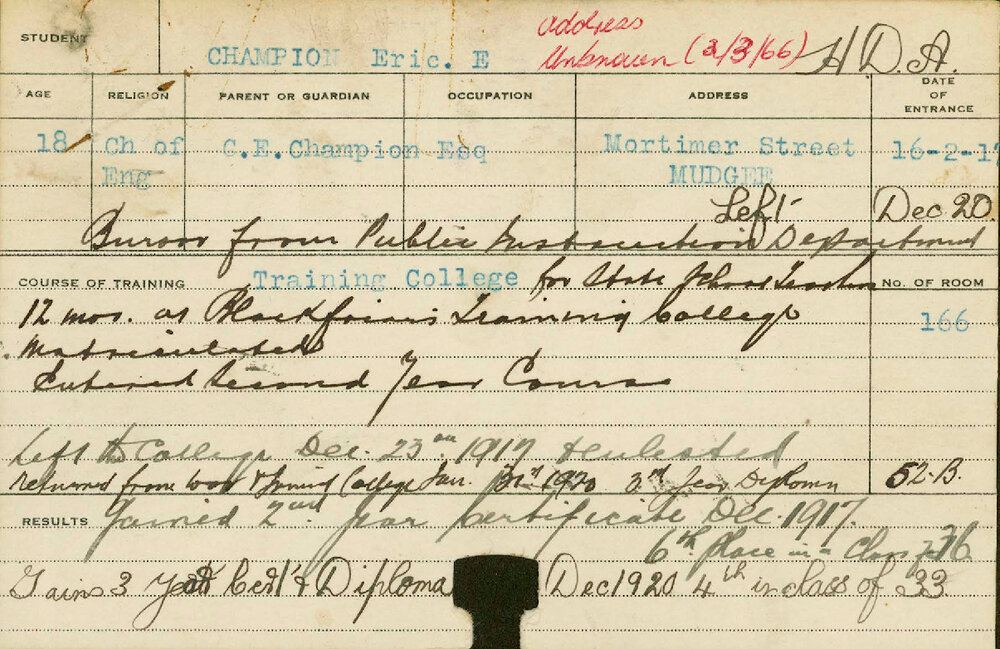 STUDENT CHAMPION Eric. E address
Unknown (3/3/66) H.D.A.
AGE RELIGION PARENT OR GUARDIAN OCCUPATION ADDRESS DATE OF ENTRANCE
18 Ch of Eng C.E.Champion Esq Mortimer Street MUDGEE 16-2-17
Left Dec 20
Bursar from Public Instruction Department
COURSE OF TRAINING Training College for State School Teachers No. OF ROOM
12 mos. at Blackfriars Training College 166
Matriculated
Entered Second Year Course
Left the College Dec. 23rd 1917 & enlisted
returned from war & joined College Jan. 1920 3rd Year Diploma 52-B.
RESULTS Gained 2nd Year Certificate Dec. 1917.
6th place in a class of 16
Gains 3 Year Cert & Diploma Dec 1920 4th in class of 33